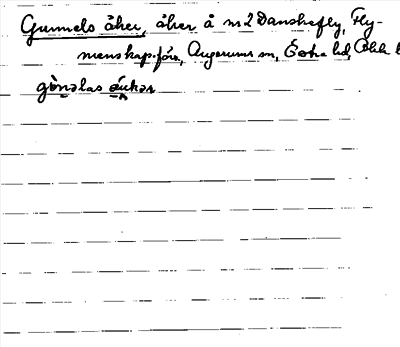 Gunnels åker, åker å nr 2 Danskefly, Fly-
menskap.förs, Augerums sn, Östra hd, Blek l
gònəlas